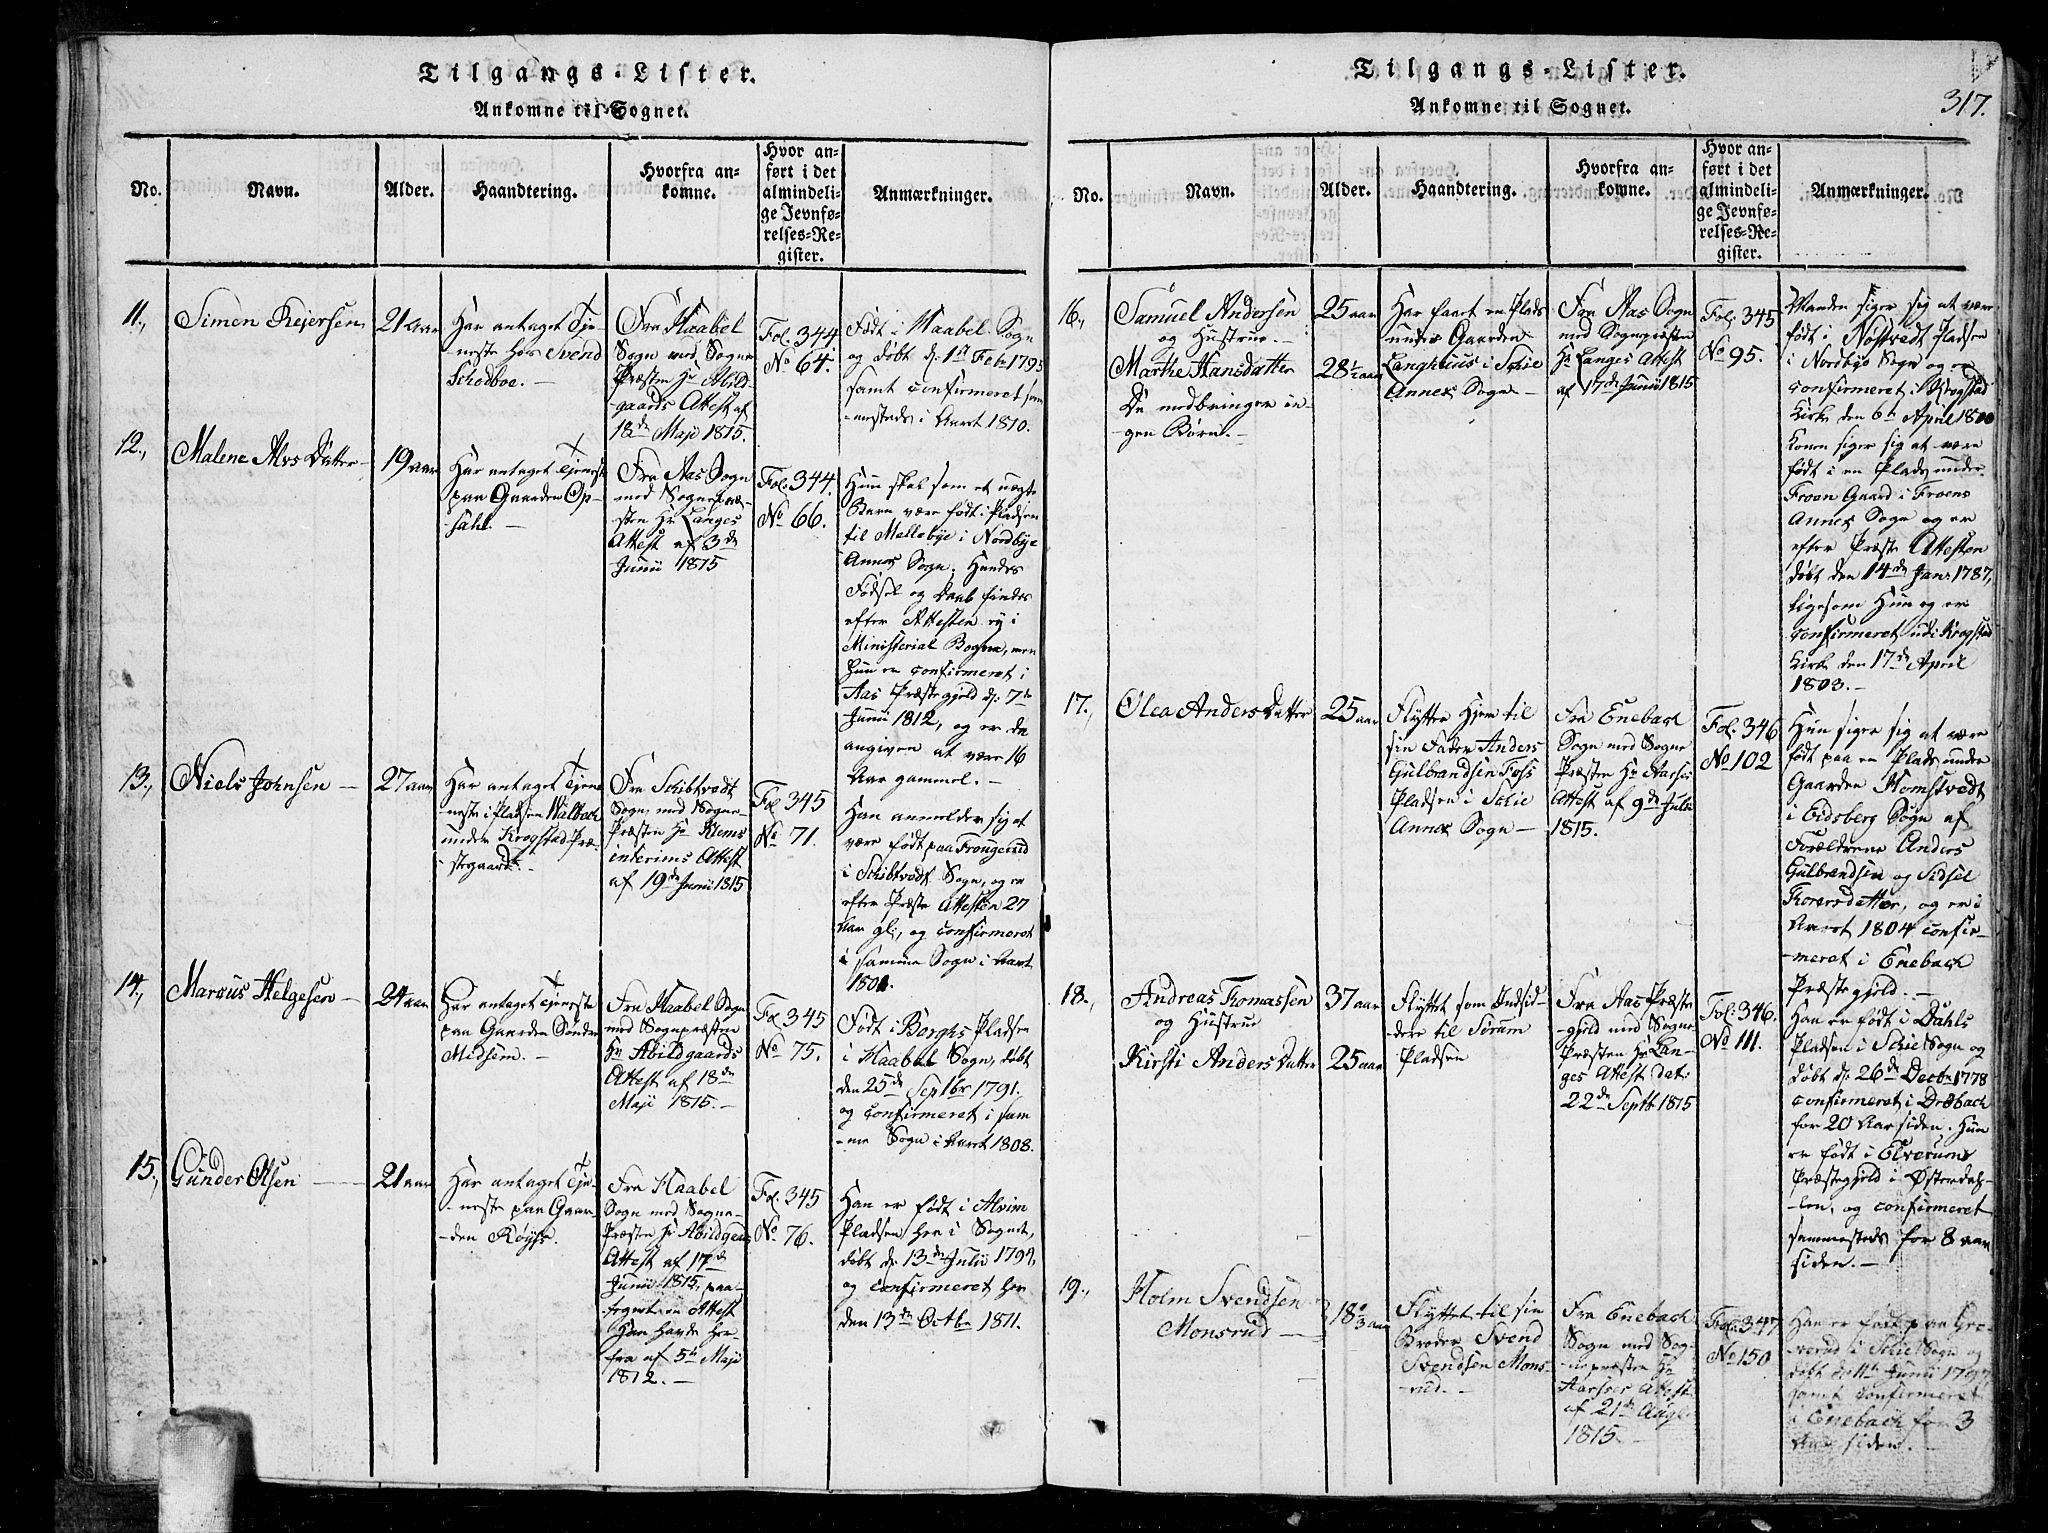 Tilgangs-Lister.
Ankomne til Sognet.
No.
Navn.
Alder.
Haandtering.
Hvorfra an-
komne.
Hvor an-
ført i det
almindeli-
ge Jevnfø-
relses-Re-
gister.
Anmærkninger.
11.,
Simen Rejersen
21 aar
Har antaget Tje-
neste hos Svend
Schodboe. —
Fra Haabel
Sogn med Sogne
Præsten Hr Abild-
gaards Attest af
18de Maji 1815.
Fol. 344
No 64.
Født i Haabel Sogn
og døbt d. 1ste Febr 1795
samt confirmeret sam-
mesteds i Aaret 1810.
12.,
Malene Alvs Datter
19 aar
Har antaget Tjeneste
paa Gaarden Op-
sahl. —
Fra Aas Sogn
med Sognepræ-
sten Hr Langes
Attest af 3de
Junii 1815
Fol. 344.
No 66.
Hun skal som et uægte
Barn være født i Pladsen
til Mellebye i Nordbye
Annex Sogn. Hendes
Fødsel og Daab findes
efter Attesten ej i
Ministerial Bogen, men
hun er confirmeret i
Aas Præstegjeld d. 7de
Junii 1812, og er da
angiven at være 16
Aar gammel. —
13.,
Niels Johnsen —
27 aar
Har antaget Tjene-
neste i Pladsen Walbach
under Krogstad Præ-
stegaard. —
Fra Schibtvedt
Sogn, med Sogne-
Præsten Hr Klems
interims Attest
af 19de Junii 1815
Fol. 345
No 71.
Han anmelder sig at
være født paa Frougerud
i Schibtvedt Sogn, og er
efter Præste Attesten 27
Aar gl., og confirmeret
i samme Sogn i Aaret
14.,
Marcus Helgesen —
24 aar
Har antaget Tjeneste
paa Gaarden Søndre
Midsem. —
Fra Haabel Sogn
med Sognepræsten
Hr Abildgaards
Attest af 18de
Maji 1815. —
Fol 345
No 75.
Født i Borghs Pladsen
i Haabel Sogn, døbt
den 25de Septbr 1791.
og confirmeret i sam-
me Sogn i Aaret 1808.
15.,
Gunder Olsen —
21 aar
Har antaget Tje-
neste paa Gaar-
den Røyse.
Fra Haabel
Sogn med Sogne-
Præsten Hr Abildgaards
Attest af 17de
Junii 1815, paa-
tegnet en Attest
Han havde her-
fra af 5te Maji
1812. —
Fol. 345
No 76.
Han er født i Alvim
Pladsen her i Sognet,
døbt d. 13de Julii 1794,
og confirmeret her
den 13de Octbr 1811.
Tilgangs-Lister.
Ankomne til Sognet.
317.
No.
Navn.
Alder.
Haandtering.
Hvorfra an-
komne.
Hvor an-
ført i det
almindeli-
ge Jevnfø-
relses-Re-
gister.
Anmærkninger.
16.,
Samuel Andersen
og Hustrue. —
Marthe Hansdatter
De medbringer in-
gen Børn. —
25 aar
28½ aar
Har faaet en Plads
under Gaarden
Langhuus i Schie
Annex Sogn —
Fra Aas Sogn
med Sognepræsten
Hr Langes Attest
af 17de Junii 1815
Fol. 345
No 95.
Manden siger sig at være
født i Nøstvedt Pladsen
i Nordbye Sogn og er
confirmeret i Krogstad
Kirke den 6te April
Konen siger sig at være
født i en Plads under
Froen Gaard i Froens
Annex Sogn og er
efter Præste Attesten
døbt den 14de Jan. 1787,
ligesom Hun og er
confirmeret udi Krogstad
Kirke den 17de April
1803. —
17.,
Olea Anders Datter
25 aar
Flytter hjem til
sin Fader Anders
Gulbrandsen Foss
Pladsen i Schie
Annex Sogn —
Fra Enebach
Sogn med Sogne
Præsten Hr Aarses
Attest af 9de Julii
1815.
Fol. 346
No 102
Hun siger sig at være
født paa en Plads under
Gaarden Homstvedt
i Eidsberg Sogn af
Forældrene Anders
Gulbrandsen og Sidsel
Torersdatter, og er i
Aaret 1804 confir-
meret i Enebach
Præstegjeld. —
18.,
Andreas Thomassen
og Hustrue
Kirsti Anders Datter
37 aar
25 aar
Flyttet som Indsid-
dere til Sørum
Pladsen
Fra Aas Præste
gjeld med Sogne-
Præsten Hr Lan-
ges Attest dat:
22de Septb 1815
Fol. 346.
No 111.
Han er født i Dahls
Pladsen i Schie Sogn og
døbt d. 26de Decbr 1778
confirmeret i Drøbach
for 20 Aar siden. Hun
er født i Elverums
Præstegjeld i Østerdah-
len, og confirmeret
sammesteds for 8 aar
siden. —
19.,
Holm Svendsen
Monsrud —
Flyttet til sin
Broder Svend
Svendsen Mons-
rud. —
Fra Enebach
Sogn med Sog-
nepræsten Hr
Aarses Attest
af 21de Augl.
1815. —
Fol. 347
No 150
Han er født paa
i Schie Sogn og
døbt d. 11te Junii
samt confirmeret
i Enebach for 3
Aar siden. —